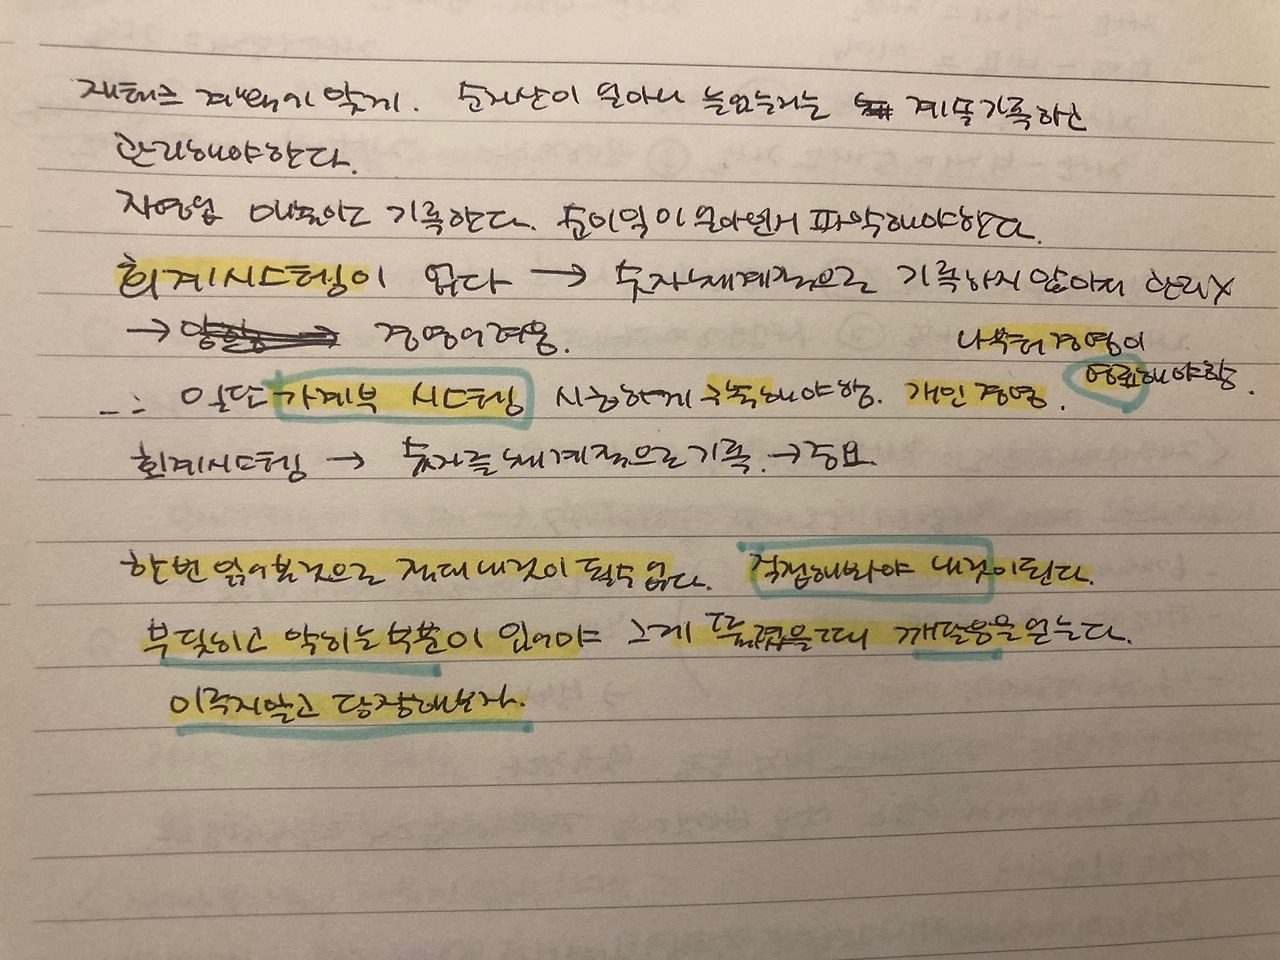 재테크 계획에 맞게. 순자산이 얼마나 늘었는지는 계속 기록하고
관리해야한다.
자영업 매출만 기록한다. 순이익이 얼마인지 파악해야한다.
회계시스템이 없다 → 숫자 체계적으로 기록하지 않아서 관리X
→ 경영 어려움.
나부터 경영이
완료해야함.
∴ 일단 가계부 시스템 시작하게 구축해야함. 개인경영.
회계시스템 → 숫자를 체계적으로 기록. → 중요.
한번 읽어본것으로 절대 내것이 될수 없다. 직접해봐야 내것이된다.
부딪히고 막히는 부분이 있어야 그게 뚫렸을때 깨달음을 얻는다.
미루지말고 당장해보자.